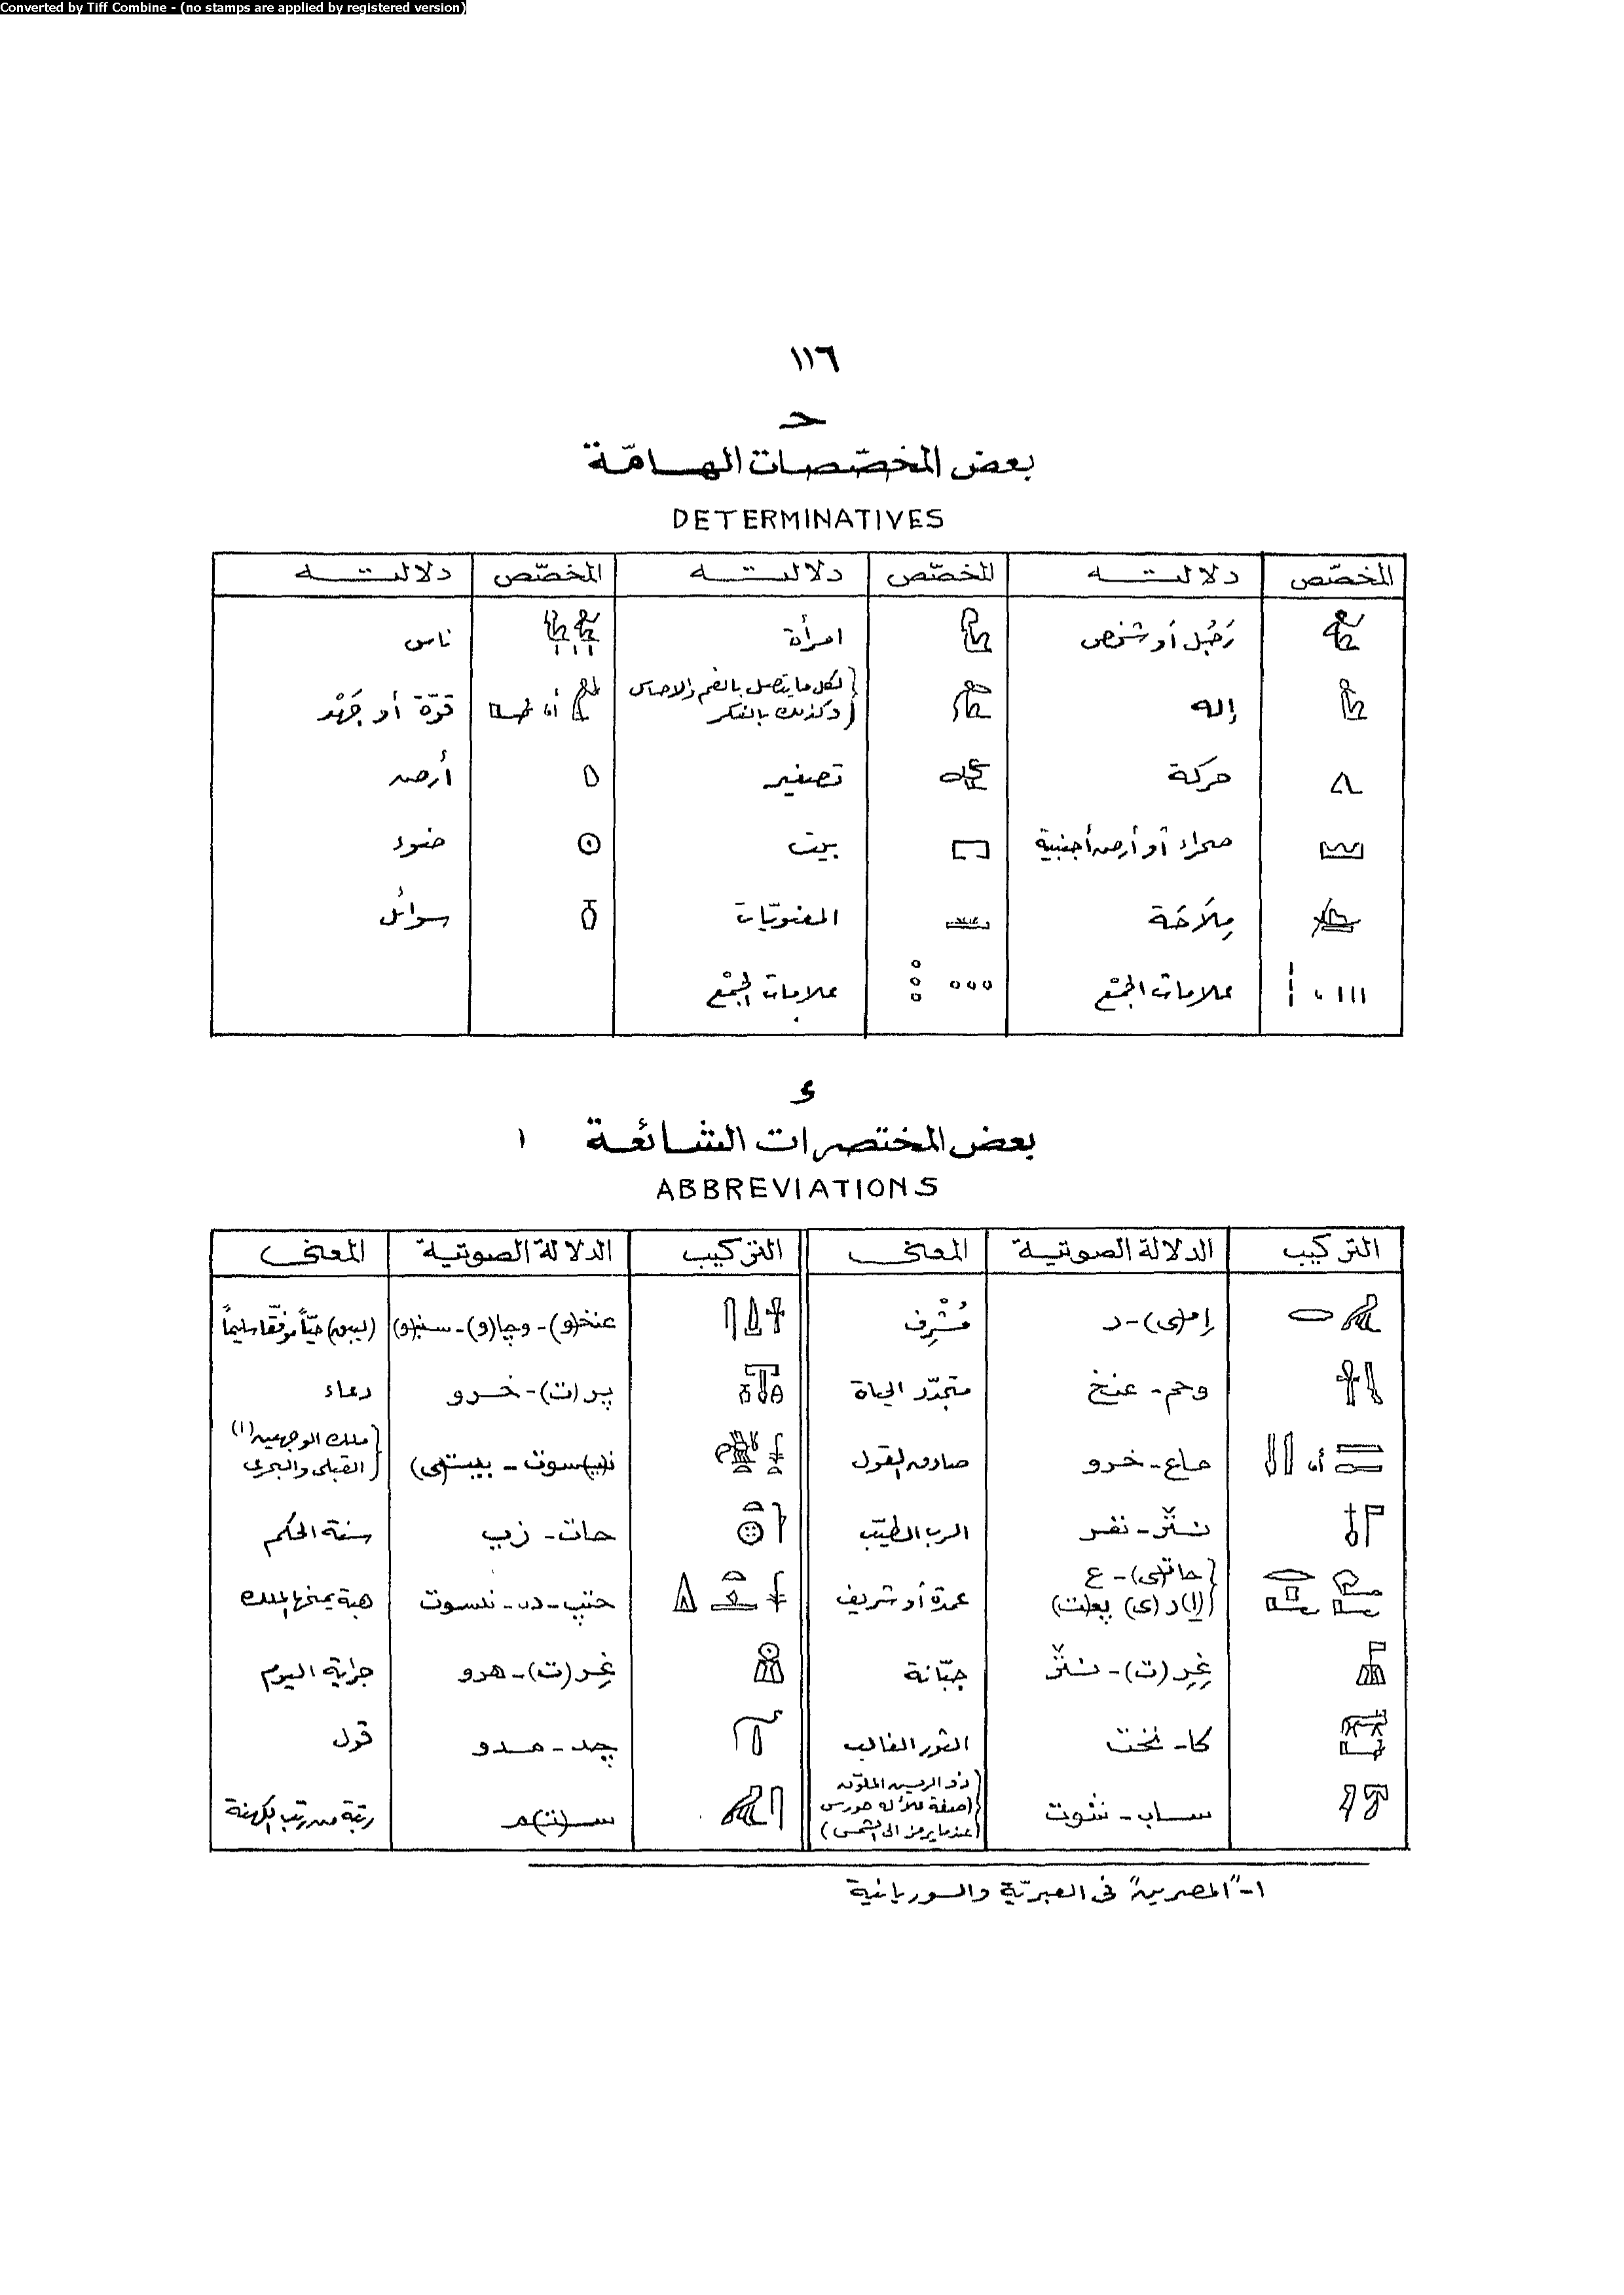 Converted by Tiff Combine - (no stamps are applied by registered version)
١١٦
حـ
بعض المخصّصات الهامّة
DETERMINATIVES
المخصّص دلالته المخصّص دلالته المخصّص دلالته
رَجُل أو شخص امرأة ناس
إله لكل ما يتصل بالفم والاحساس وكذلك بالفكر أو قوّة أو جَهْد
حركة تصغير أرض
صحراء أو أرض أجنبية بيت ضوء
مِلاَحَة المعنويّات سوائل
علامات الجمْع علامات الجمْع
د
بعض المختصرات الشائعة ١
ABBREVIATIONS
التركيب الدلالة الصوتية المعنى التركيب الدلالة الصوتية المعنى
إم(ى)-ر مُشْرِف عنخ(و)-وچا(و)-سنب(و) (ليبق) حيّاً موفّقاً سليماً
وحم-عنخ متجدّد الحياة پر(ت)-خرو دعاء
أو ماع-خرو صادق القول ملك الوجهين(١) القبلى والبحرى
نفر الرب الطيّب حات-زپ سنة الحكم
حات(ى)-ع عمدة أو شريف حتپ-دى-نسوت هبة يمنحها الملك
جبّانة هرو جراية اليوم
كا-نخت الثور الغالب چد-مدو قول
ساب-شوت ذو الريش الملوّن (صفة للأله حورس عندما يرمز الى الشمس) رتبة من رتب الكهنة
١-"المصريين" فى العبريّة والسوريانية